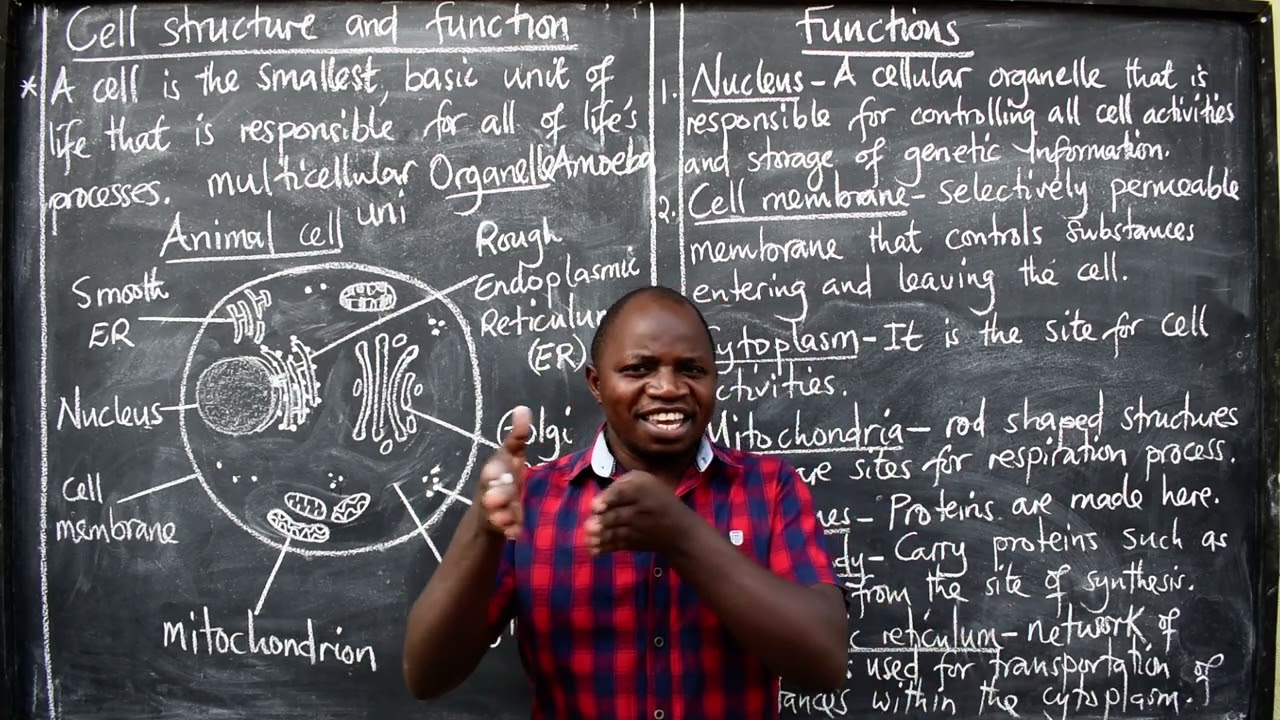 Cell structure and function
* A cell is the smallest, basic unit of
life that is responsible, for all of life's
processes. multicellular Organelle Amoeba
uni
Animal cell
Smooth
ER
Nucleus
Cell
membrane
mitochondrion
Rough
Endoplasmic
Reticulum
(ER)
Golgi
Functions
1. Nucleus - A cellular organelle that is
responsible for controlling all cell activities
and storage of genetic information.
2. Cell membrane - selectively permeable
membrane that controls substances
entering and leaving the cell.
ytoplasm - It is the site for cell
ctivities.
Mitochondria - rod shaped structures
re sites for respiration process.
mes - Proteins are made here.
dy - Carry proteins such as
from the site of synthesis.
c reticulum - network of
s used for transportation of
tances within the cytoplasm.